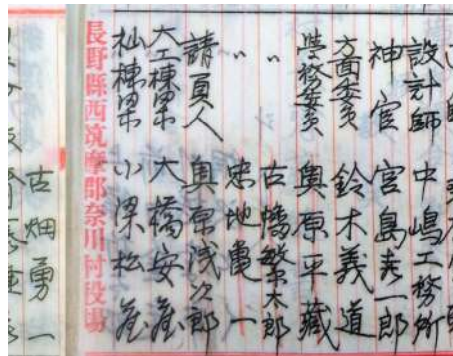 設計師 中嶋工務所
神官 宮島壱一郎
方面委員 鈴木義道
学務委員 奥原平蔵
〃 古幡繁太郎
〃 忠地亀一
請負人 奥原浅次郎
大工棟梁 大橋安蔵
杣棟梁 小梁松蔵
長野縣西筑摩郡奈川村役場
古畑勇一